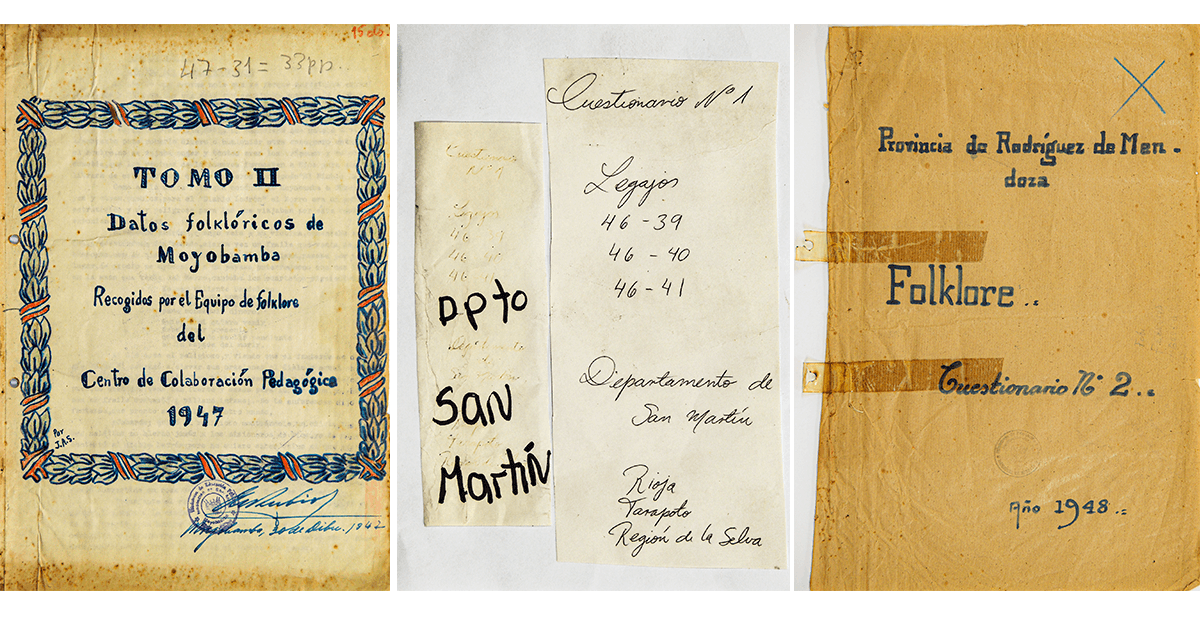 15 cts.
47-31 = 33pp.
TOMO II
Datos folklóricos de
Moyobamba
Recogidos por el Equipo de folklore
del
Centro de Colaboración Pedagógica
1947
Por
J.A.S.
Moyobamba, 30 de Dibre. 1947
Cuestionario
Nº 1
Legajos
46-39
46-40
46-
Dpto
San
Martín
Cuestionario Nº 1
Legajos
46-39
46-40
46-41
Departamento de
San Martín
Rioja
Tarapoto
Región de la Selva
Provincia de Rodríguez de Men-
doza
Folklore..
Cuestionario Nº 2..
Año 1948..